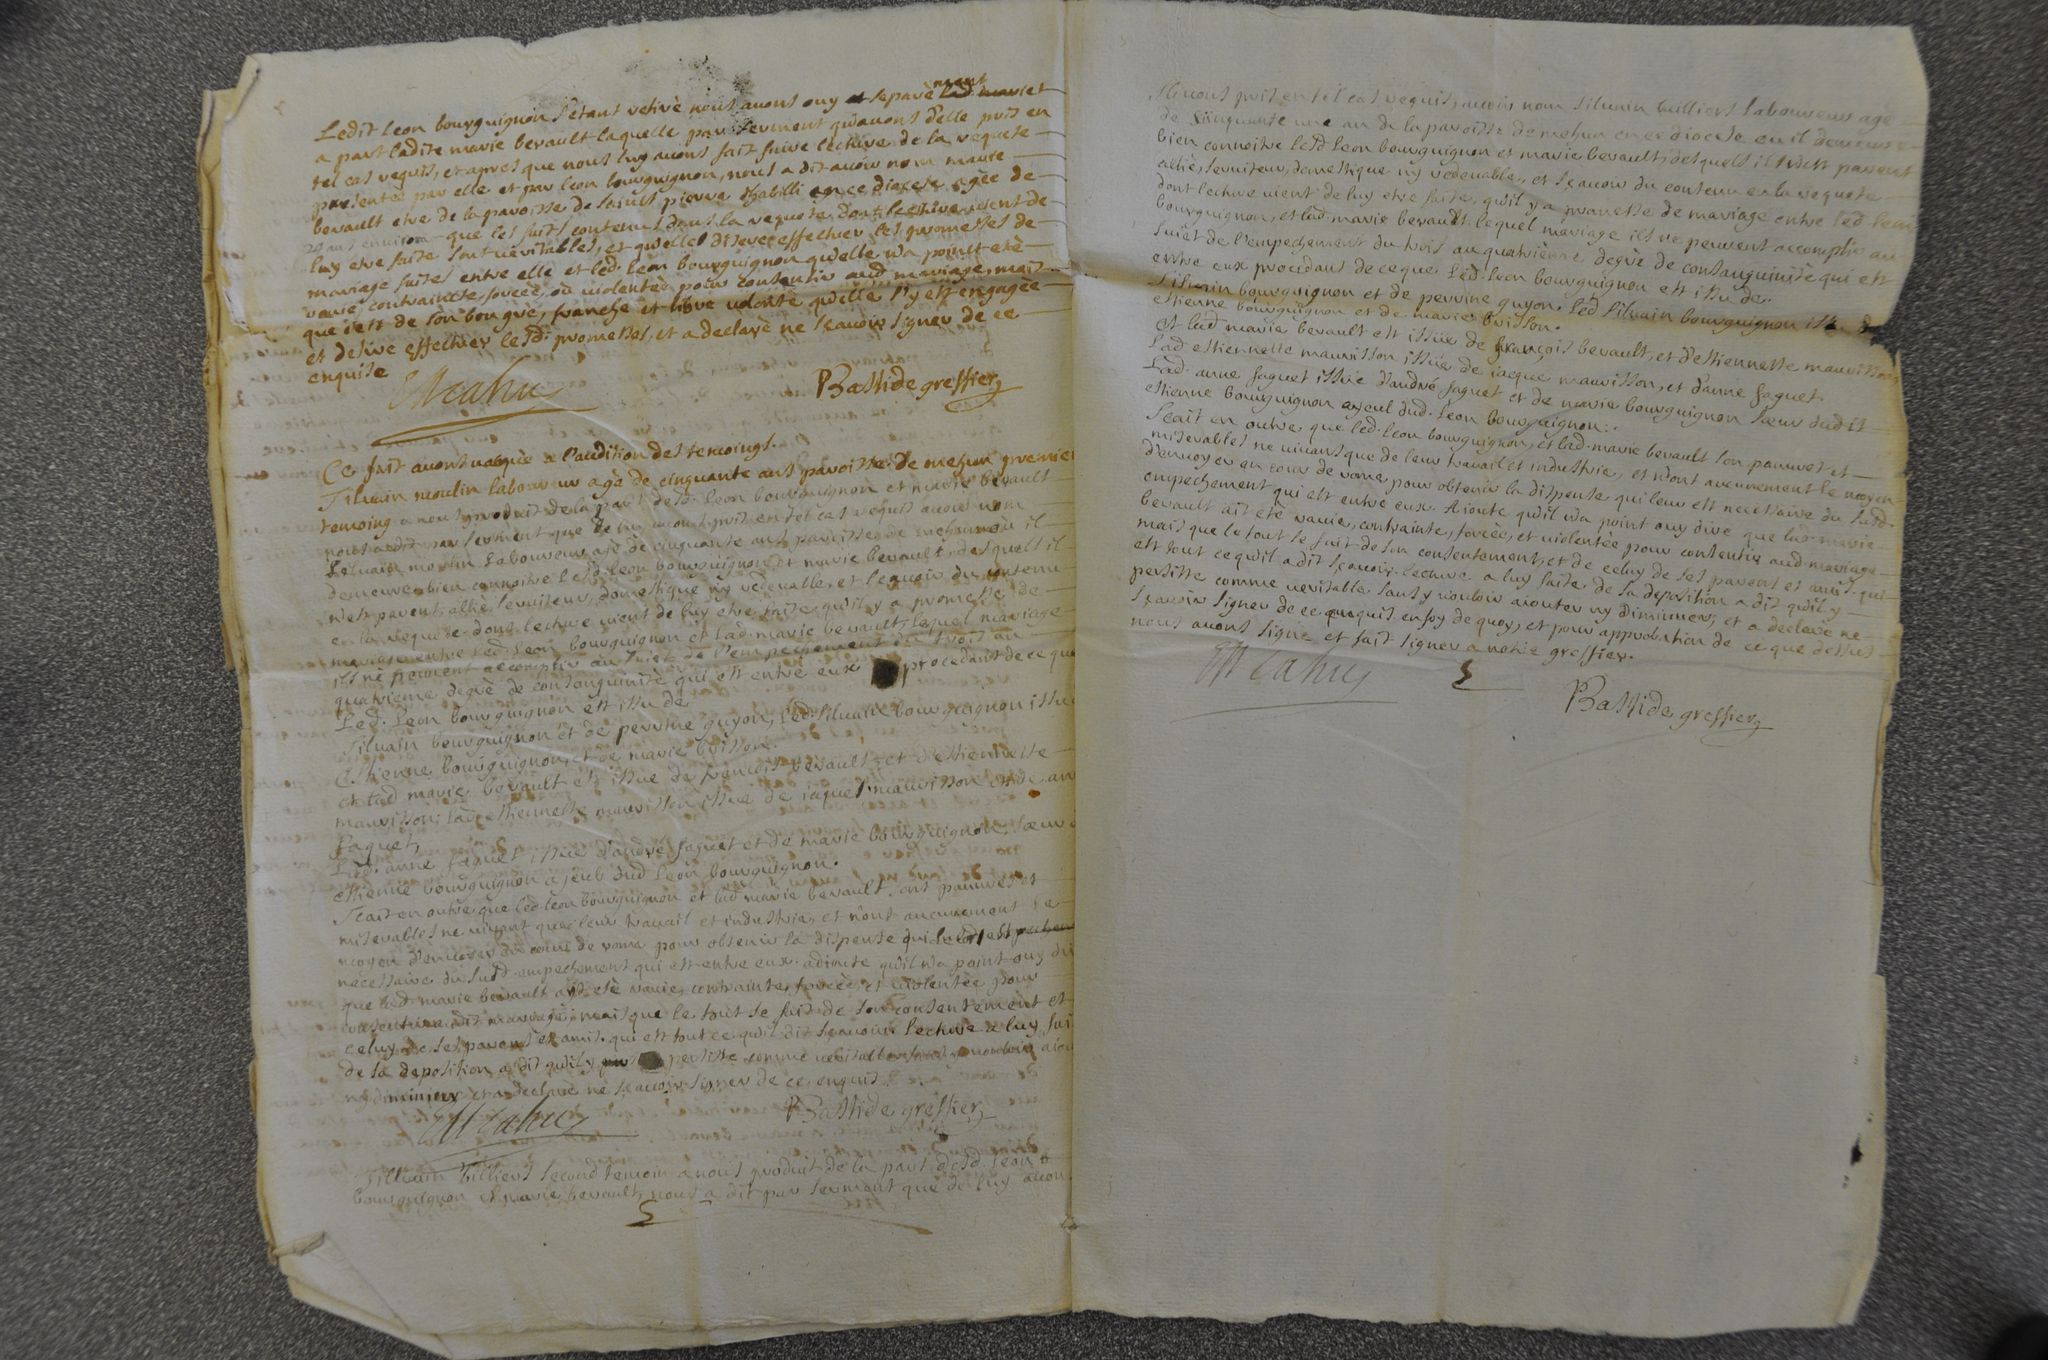 Ledit Leon bourguignon s'etant retiré nous avons ouy et separé
a part ladite marie berault laquelle par serment qu'avons d'elle pris en
tel cas requis, et apres que nous luy avons fait faire lecture de la requete
presentée par elle et par Leon bourguignon, nous a dit avoir nom marie
berault etre de la paroisse de saint pierre en ce diocese agée de
29 ans environ que les faits contenus dans la requete dont lecture vient de
luy etre faite sont veritables, et qu'elle desire effectuer les promesses de
mariage faites entre elle et led. Leon bourguignon qu'elle n'a point eté
ravie, contrainte, forcée, ou violentée pour consentir aud mariage, mais
que c'est de son bon gré, franche et libre volonté qu'elle s'y est engagée
et desire effectuer lesd. promesses, et a declaré ne sçavoir signer de ce
enquise
Bastide greffier
Ce fait avons vacqué a l'audition des temoings.
Silvain moulin laboureur agé de cinquante ans paroisse de mehun premier
temoing a nous produit de la part desd. Leon bourguignon et marie berault
nous a dit par serment que de luy avons pris en tel cas requis avoir nom
Silvain moulin laboureur agé de cinquante ans paroisse de mehun ou il
demeure, bien connoitre lesd Leon bourguignon et marie berault, desquels il
n'est parent, allié, serviteur, domestique ny redevable, et sçavoir du contenu
en la requete dont lecture vient de luy etre faite qu'il y a promesse de
mariage entre led. Leon bourguignon et lad. marie berault, lequel mariage
ils ne peuvent accomplir au sujet de l'empechement du trois au
quatrieme degré de consanguinité qui est entre eux procedant de ce que
Led. Leon bourguignon est issu de
Silvain bourguignon et de perrine guyon, led. Silvain bourguignon issu
Estienne bourguignon, et de marie brisson.
et lad marie berault est issue de françois berault, et d'estiennette
maurisson, lad. estiennette maurisson issue de jaque maurisson et de an
faquet,
Lad. anne faquet, issue d'andré faquet et de marie bourguignon, sœur
etienne bourguignon ajeul dud Leon bourguignon.
Scait en outre que led. leon bourguignon et lad marie berault sont pauvres et
miserables ne vivant que de leur travail et industrie, et n'ont aucunement le
moyen d'envoyer en cour de rome pour obtenir la dispense qui leur est
necessaire du susd. empechement qui est entre eux. adjoute qu'il n'a point ouy di
que lad. marie berault ayt eté ravie, contrainte, forcée, et violentée pour
consentir aud mariage, mais que le tout se fait de son consentement et
celuy de ses parens et amis. qui est tout ce qu'il dit sçavoir. lecture a luy fai
de sa deposition a dit qu'il y persiste comme veritable sans y vouloir ajou
ny diminuer et a declaré ne sçavoir signer de ce enquis
Bastide greffier
Silvain billiers second temoin a nous produit de la part desd. Leon
bourguignon et marie berault, nous a dit par serment que de luy avon
pris en tel cas requis, avoir nom Silvain laboureur agé
de cinquante une an de la paroisse de mehun en ce diocese ou il demeure
bien connoitre lesd Leon bourguignon et marie berault, desquels il n'est parent
allié, serviteur, domestique ny redevable, et sçavoir du contenu en la requete
dont lecture vient de luy etre faite, qu'il y a promesse de mariage entre led. leon
bourguignon, et lad. marie berault. lequel mariage ils ne peuvent accomplir au
sujet de l'empechement du trois au quatrieme degré de consanguinité qui est
entre eux procedant de ce que Led. Leon bourguignon est issu de.
Silvain bourguignon et de perrine guyon. led Silvain bourguignon issu
etienne bourguignon et de marie brisson.
et lad marie berault est issue de françois berault, et d'estiennette maurisson
Lad estiennette maurisson issue de jacque maurisson, et d'anne faquet
Lad. anne faquet issue d'andré faquet et de marie bourguignon sœur dud it
etienne bourguignon ayeul dud. Leon bourguignon.
Scait en outre que led. leon bourguignon, et lad. marie berault son pauvres et
miserables ne vivans que de leur travail et industrie, et n'ont aucunement le moyen
d'envoyer en cour de rome pour obtenir la dispense qui leur est necessaire du susd.
empechement qui est entre eux. Ajoute qu'il n'a point ouy dire que lad. marie
berault ait eté ravie, contrainte, forcée, et violentée pour consentir aud mariage
mais que le tout se fait de son consentement, et de celuy de ses parens et amis. qui
est tout ce qu'il a dit sçavoir. lecture a luy faite de sa deposition a dit qu'il y
persiste comme veritable sans y vouloir ajouter ny diminuer, et a declaré ne
sçavoir signer de ce enquis. en foy de quoy, et pour approbation de ce que dessus
nous avons signé et fait signer a notre greffier.
Bastide greffier